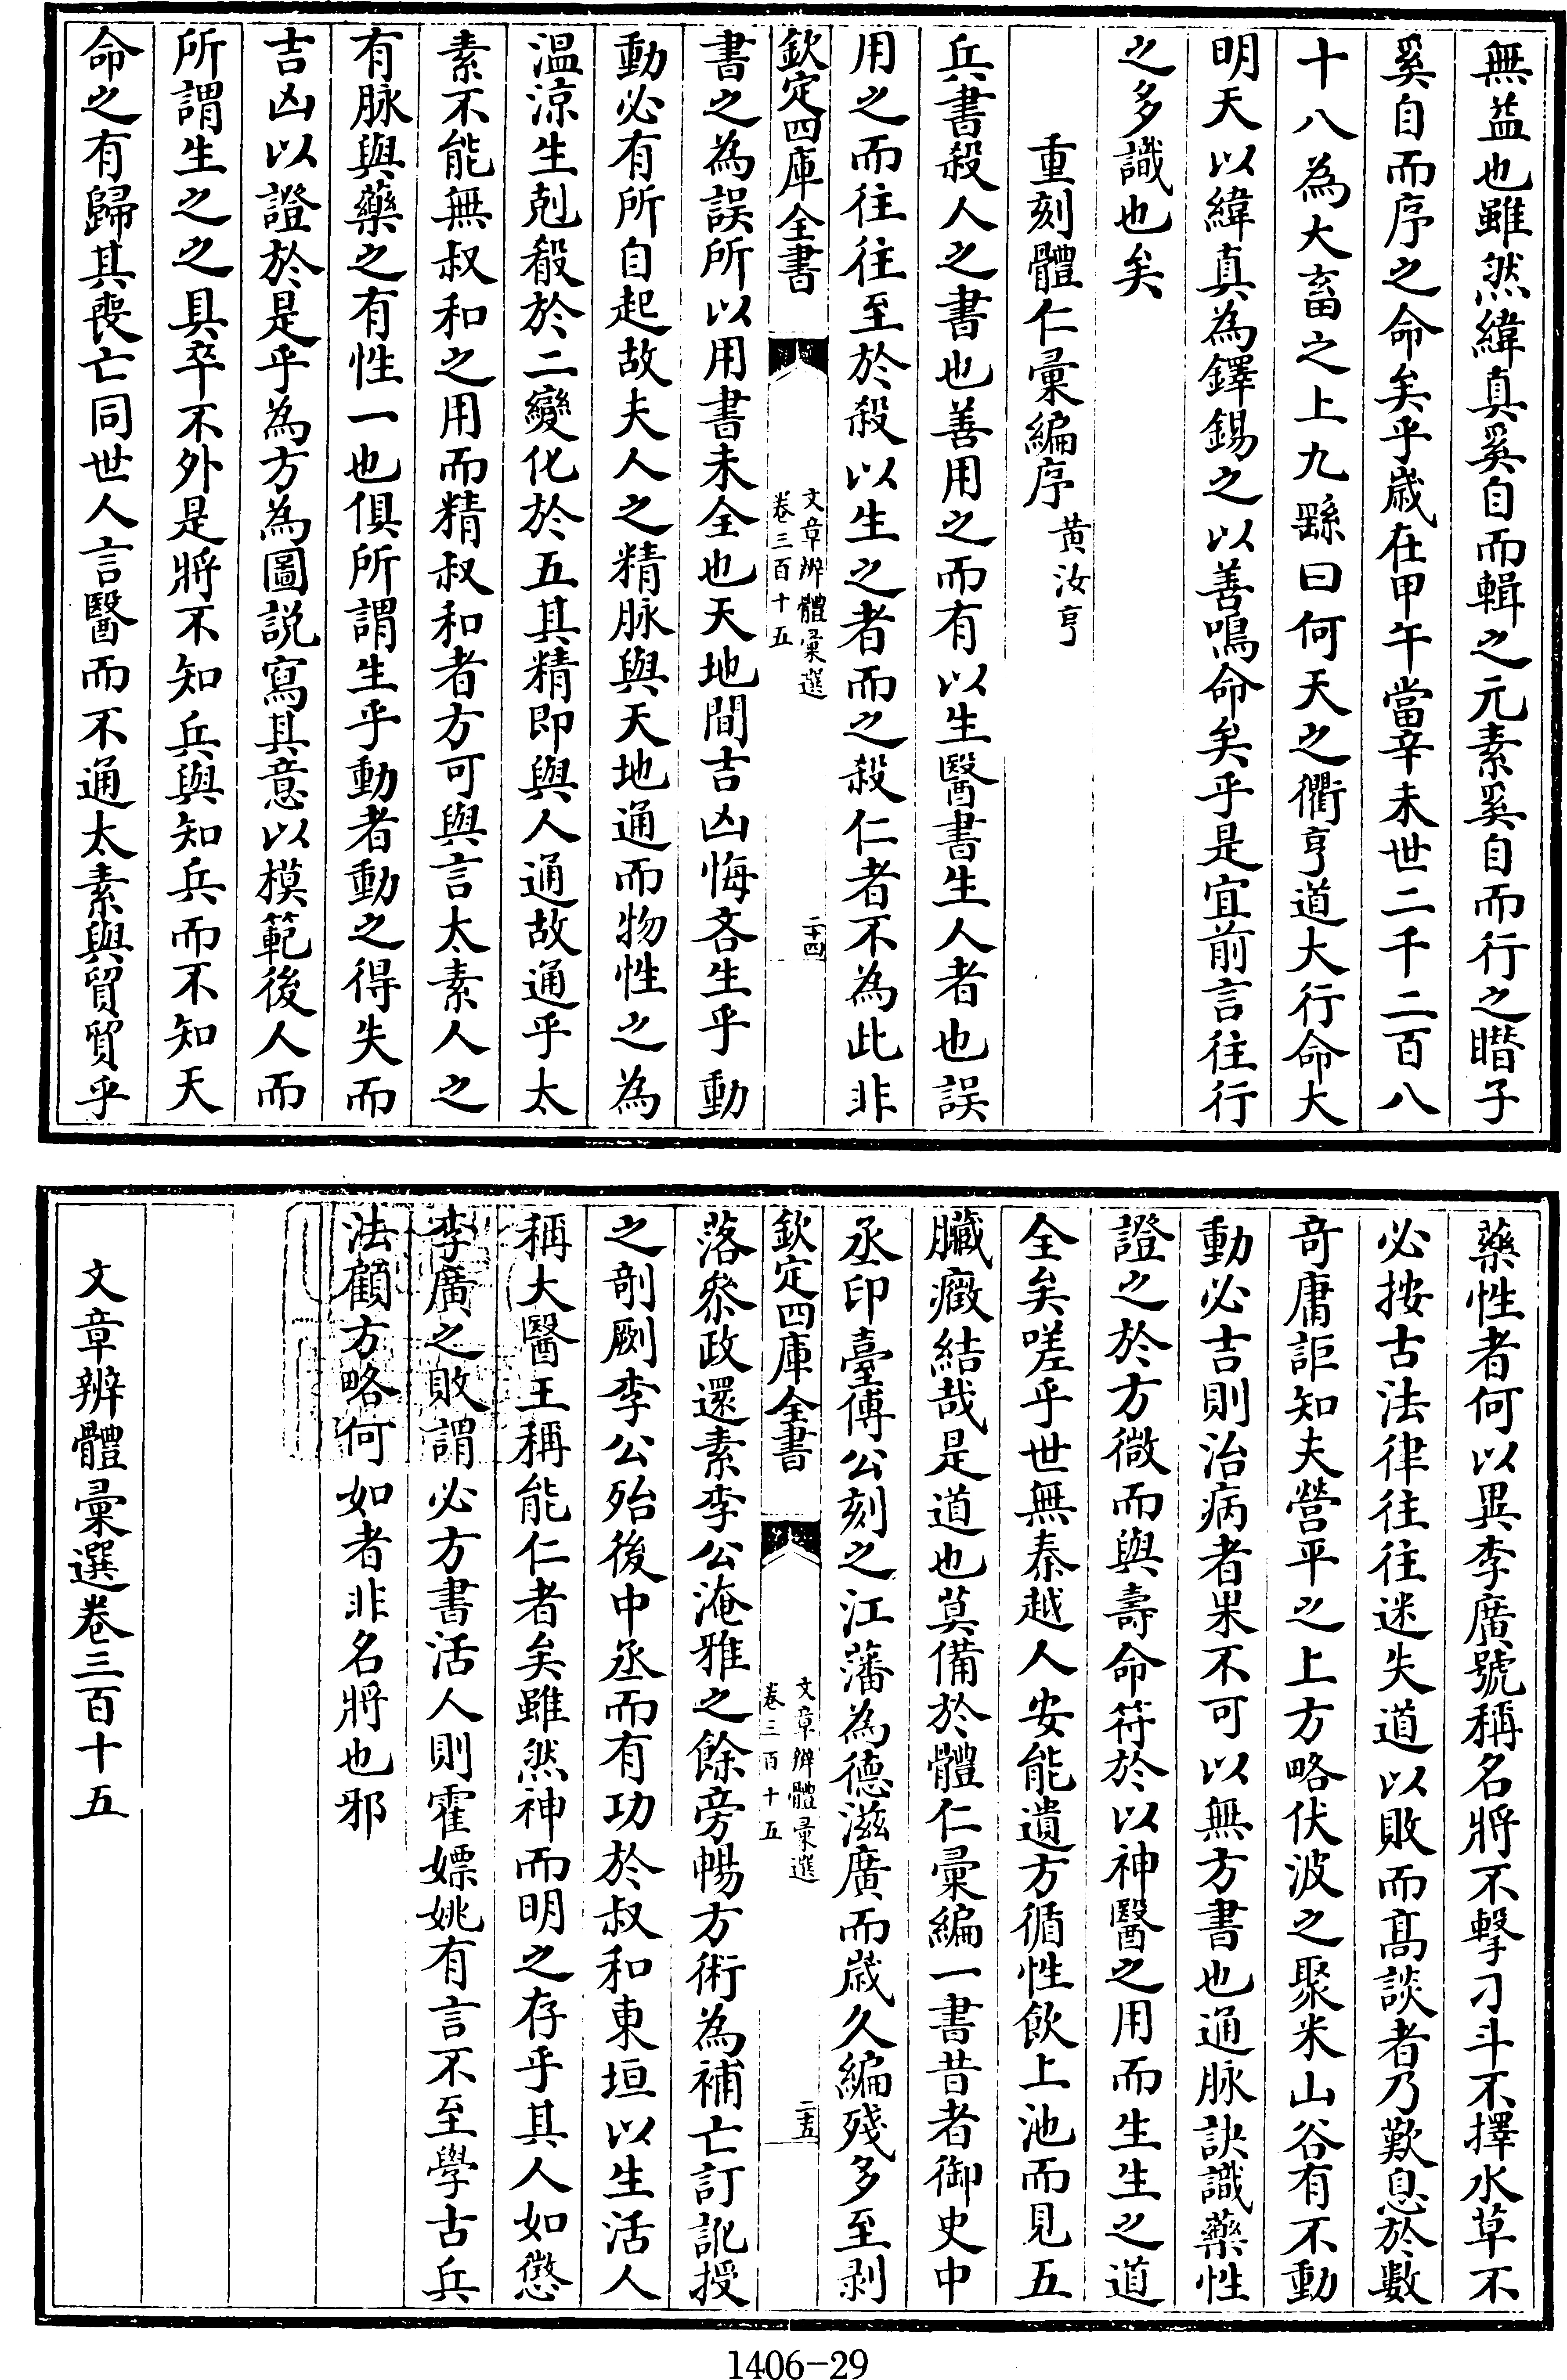 無益也雖然緯真奚自而輯之元素奚自而行之瞻子
奚自而序之命矣乎歲在甲午當辛未世二千二百八
十八為大畜之上九繇曰何天之衢亨道大行命大
明天以緯真為鐸錫之以善鳴命矣乎是宜前言往行
之多識也矣
重刻體仁彙編序 黄汝亨
兵書殺人之書也善用之而有以生醫書生人者也誤
用之而往往至於殺以生之者而之殺仁者不為此非
欽定四庫全書
文章辨體彙選
卷三百十五
二十四
書之為誤所以用書未全也天地間吉凶悔吝生乎動
動必有所自起故夫人之精脉與天地通而物性之為
温涼生剋殽於二變化於五其精即與人通故通乎太
素不能無叔和之用而精叔和者方可與言太素人之
有脉與藥之有性一也俱所謂生乎動者動之得失而
吉凶以證於是乎為方為圖説寫其意以模範後人而
所謂生之之具卒不外是將不知兵與知兵而不知天
命之有歸其喪亡同世人言醫而不通太素與貿貿乎
藥性者何以異李廣號稱名將不擊刁斗不擇水草不
必按古法律往往迷失道以敗而髙談者乃歎息於數
奇庸詎知夫營平之上方略伏波之聚米山谷有不動
動必吉則治病者果不可以無方書也通脉訣識藥性
證之於方微而與壽命符於以神醫之用而生生之道
全矣嗟乎世無秦越人安能遺方循性飲上池而見五
臟癥結哉是道也莫備於體仁彙編一書昔者御史中
丞印臺傅公刻之江藩為德滋廣而歲久編殘多至剥
欽定四庫全書
文章辨體彙選
卷三百十五
二十五
落叅政還素李公淹雅之餘旁暢方術為補亡訂訛授
之剞劂李公殆後中丞而有功於叔和東垣以生活人
稱大醫王稱能仁者矣雖然神而明之存乎其人如懲
李廣之敗謂必方書活人則霍嫖姚有言不至學古兵
法顧方略何如者非名將也邪
文章辨體彙選卷三百十五
1406-29